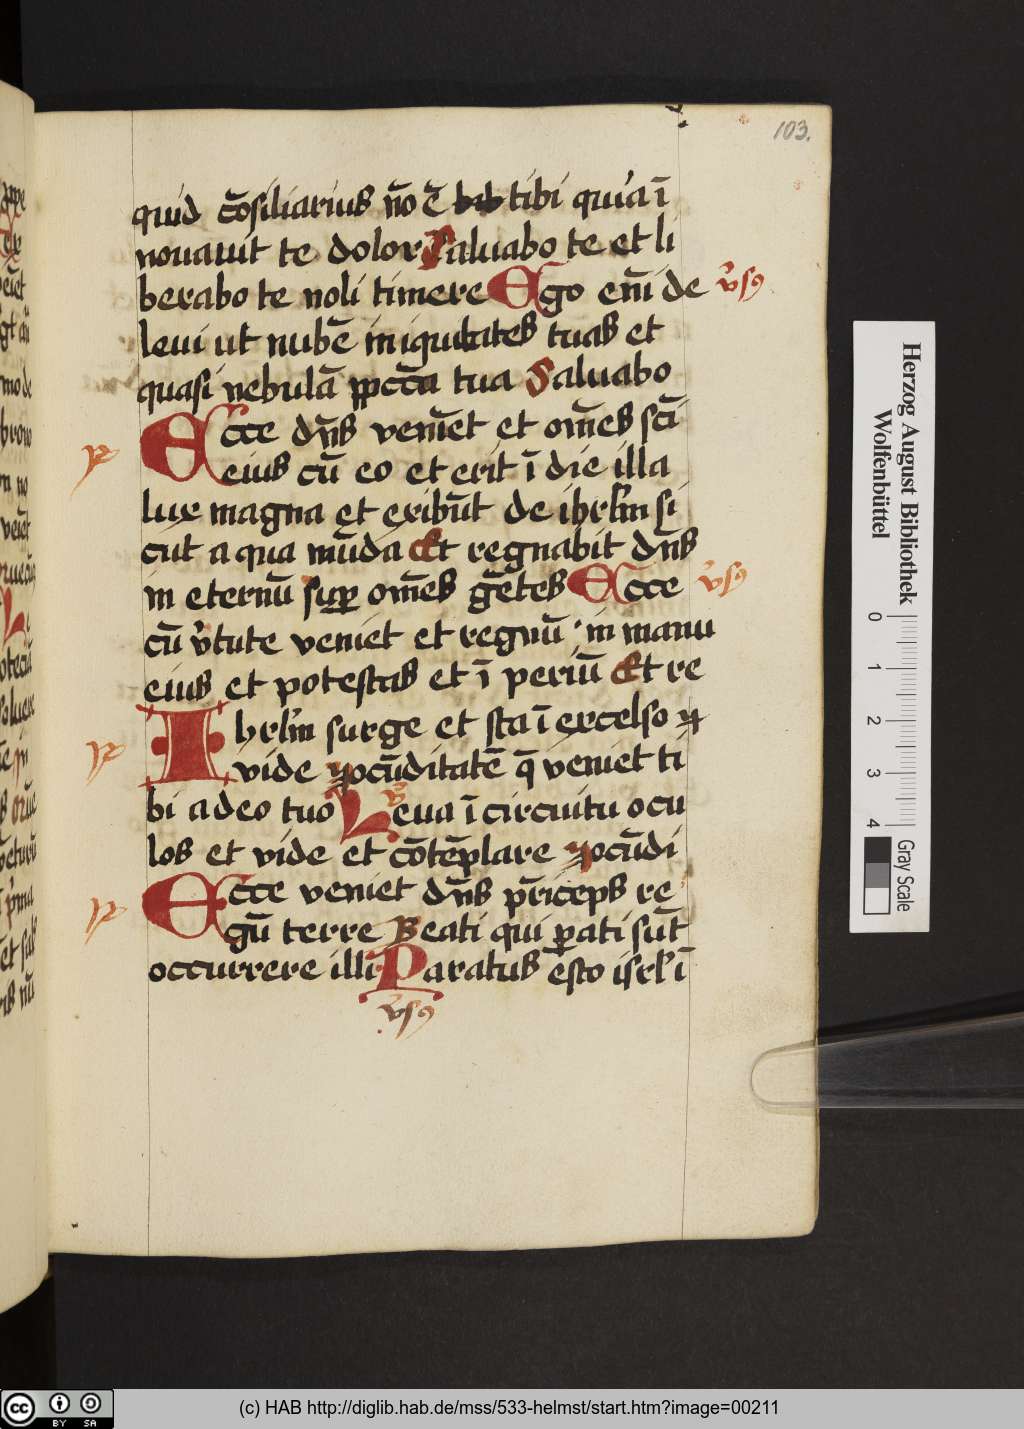 103.
quid cōsiliarius nō ē tibi quia ī
nouauit te dolor Saluabo te et li
berabo te noli timere Ego em̄ de vs9
leui ut nubē iniquitates tuas et
quasi nebulā ppccā tua Saluabo
Ecce dn̄s veniet et om̄es sc̄i
eius cū eo et erit ī die illa
lux magna et exibūt de ihrl̄m si
cut aqua mūda Et regnabit dn̄s
in eternū sup om̄es gētes Ecce vs9
cū v̓tute veniet et regnū in manu
eius et potestas et ī periū Et re
Ihrl̄m surge et sta ī excelso ⁊
vide iocūditatē q̄ veniet ti
bi a deo tuo Leua ī circuitu ocu
los et vide et cōtēplare iocūdi
Ecce veniet dn̄s p̄riceps re
gū terre Beati qui parati sūt
occurrere illi Paratus esto isrl̄ ī
vs9
Herzog August Bibliothek
Wolfenbüttel
0 1 2 3 4
Gray Scale
cc BY SA
(c) HAB http://diglib.hab.de/mss/533-helmst/start.htm?image=00211